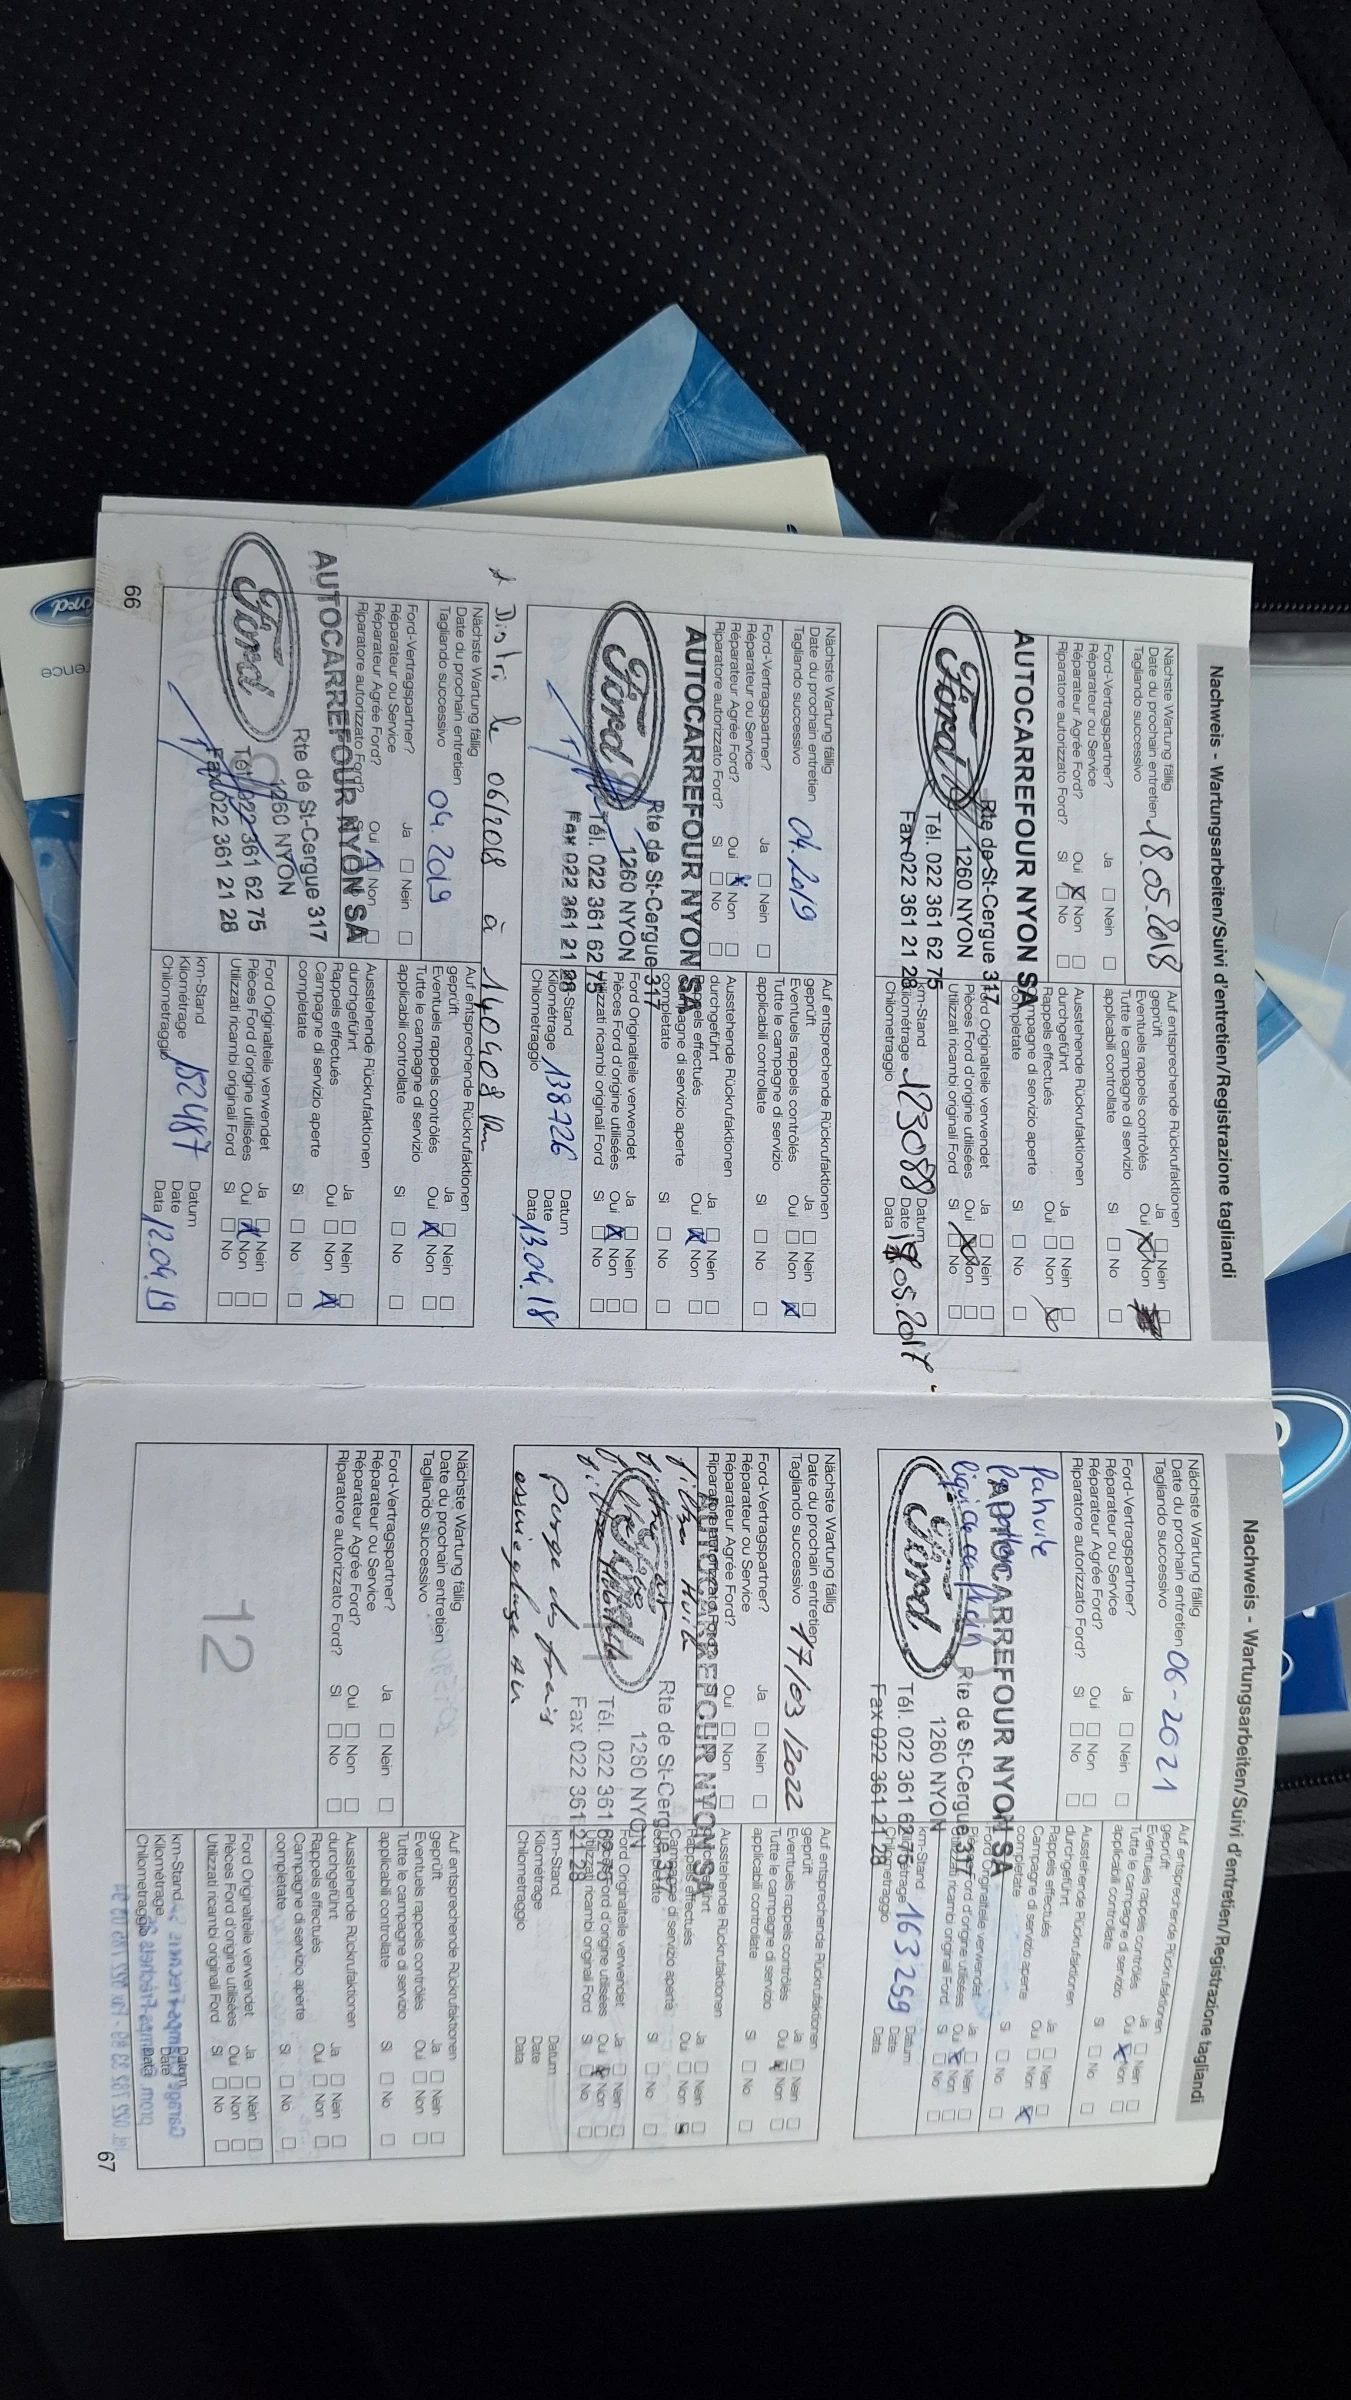 Nachweis - Wartungsarbeiten/Suivi d'entretien/Registrazione tagliandi
Nächste Wartung fällig
Date du prochain entretien 18.05.2018
Tagliando successivo
Ford-Vertragspartner? Ja Nein
Réparateur ou Service
Réparateur Agrée Ford? Oui X Non
Riparatore autorizzato Ford? Sì No
AUTOCARREFOUR NYON SA
Rte de St-Cergue 317
1260 NYON
Ford
Tél. 022 361 62 75
Fax 022 361 21 28
Auf entsprechende Rückrufaktionen
geprüft Ja Nein
Eventuels rappels contrôlés Oui X Non
Tutte le campagne di servizio
applicabili controllate Sì No
Ausstehende Rückrufaktionen
durchgeführt Ja Nein
Rappels effectués Oui Non X
Campagne di servizio aperte
completate Sì No
Ford Originalteile verwendet Ja Nein
Pièces Ford d'origine utilisées Oui X Non
Utilizzati ricambi originali Ford Sì No
km-Stand Datum
Kilométrage 123088 Date
Chilometraggio Data 05.2017
Nächste Wartung fällig
Date du prochain entretien 04.2019
Tagliando successivo
Ford-Vertragspartner? Ja Nein
Réparateur ou Service
Réparateur Agrée Ford? Oui X Non
Riparatore autorizzato Ford? Sì No
AUTOCARREFOUR NYON SA
Rte de St-Cergue 317
1260 NYON
Ford
Tél. 022 361 62 75
Fax 022 361 21 28
Auf entsprechende Rückrufaktionen
geprüft Ja Nein
Eventuels rappels contrôlés Oui Non X
Tutte le campagne di servizio
applicabili controllate Sì No
Ausstehende Rückrufaktionen
durchgeführt Ja Nein
Rappels effectués Oui X Non
Campagne di servizio aperte
completate Sì No
Ford Originalteile verwendet Ja Nein
Pièces Ford d'origine utilisées Oui X Non
Utilizzati ricambi originali Ford Sì No
km-Stand Datum
Kilométrage 138726 Date
Chilometraggio Data 13.04.18
* Distri le 06/2018 à 140408 km
Nächste Wartung fällig
Date du prochain entretien 04.2019
Tagliando successivo
Ford-Vertragspartner? Ja Nein
Réparateur ou Service
Réparateur Agrée Ford? Oui X Non
Riparatore autorizzato Ford?
AUTOCARREFOUR NYON SA
Rte de St-Cergue 317
1260 NYON
Ford
Tél. 022 361 62 75
Fax 022 361 21 28
Auf entsprechende Rückrufaktionen
geprüft Ja Nein
Eventuels rappels contrôlés Oui X Non
Tutte le campagne di servizio
applicabili controllate Sì No
Ausstehende Rückrufaktionen
durchgeführt Ja Nein
Rappels effectués Oui Non X
Campagne di servizio aperte
completate Sì No
Ford Originalteile verwendet Ja Nein
Pièces Ford d'origine utilisées Oui X Non
Utilizzati ricambi originali Ford Sì No
km-Stand Datum
Kilométrage 152487 Date
Chilometraggio Data 12.04.19
66
Nachweis - Wartungsarbeiten/Suivi d'entretien/Registrazione tagliandi
Nächste Wartung fällig
Date du prochain entretien 06-2021
Tagliando successivo
Ford-Vertragspartner? Ja Nein
Réparateur ou Service
Réparateur Agrée Ford? Oui Non
Riparatore autorizzato Ford? Sì No
AUTOCARREFOUR NYON SA
Rte de St-Cergue 317
1260 NYON
Ford
Tél. 022 361 62 75
Fax 022 361 21 28
Auf entsprechende Rückrufaktionen
geprüft Ja Nein
Eventuels rappels contrôlés Oui X Non
Tutte le campagne di servizio
applicabili controllate Sì No
Ausstehende Rückrufaktionen
durchgeführt Ja Nein
Rappels effectués Oui Non X
Campagne di servizio aperte
completate Sì No
Ford Originalteile verwendet Ja Nein
Pièces Ford d'origine utilisées Oui X Non
Utilizzati ricambi originali Ford Sì No
km-Stand Datum
Kilométrage 163.259 Date
Chilometraggio Data
Nächste Wartung fällig
Date du prochain entretien 17/03/2022
Tagliando successivo
Ford-Vertragspartner? Ja Nein
Réparateur ou Service
Réparateur Agrée Ford? Oui Non
Riparatore autorizzato Ford?
AUTOCARREFOUR NYON SA
filtre Huile
Rte de St-Cergue 317
1260 NYON
Ford
Tél. 022 361 62 75
Fax 022 361 21 28
purge de frais
essuie glace AU
Auf entsprechende Rückrufaktionen
geprüft Ja Nein
Eventuels rappels contrôlés Oui X Non
Tutte le campagne di servizio
applicabili controllate Sì No
Ausstehende Rückrufaktionen
durchgeführt Ja Nein
Rappels effectués Oui Non X
Campagne di servizio aperte
completate Sì No
Ford Originalteile verwendet Ja Nein
Pièces Ford d'origine utilisées Oui X Non
Utilizzati ricambi originali Ford Sì No
km-Stand Datum
Kilométrage Date
Chilometraggio Data
Nächste Wartung fällig
Date du prochain entretien
Tagliando successivo
Ford-Vertragspartner? Ja Nein
Réparateur ou Service
Réparateur Agrée Ford? Oui Non
Riparatore autorizzato Ford? Sì No
12
Auf entsprechende Rückrufaktionen
geprüft Ja Nein
Eventuels rappels contrôlés Oui Non
Tutte le campagne di servizio
applicabili controllate Sì No
Ausstehende Rückrufaktionen
durchgeführt Ja Nein
Rappels effectués Oui Non
Campagne di servizio aperte
completate Sì No
Ford Originalteile verwendet Ja Nein
Pièces Ford d'origine utilisées Oui Non
Utilizzati ricambi originali Ford Sì No
km-Stand Datum
Kilométrage Date
Chilometraggio Data
67